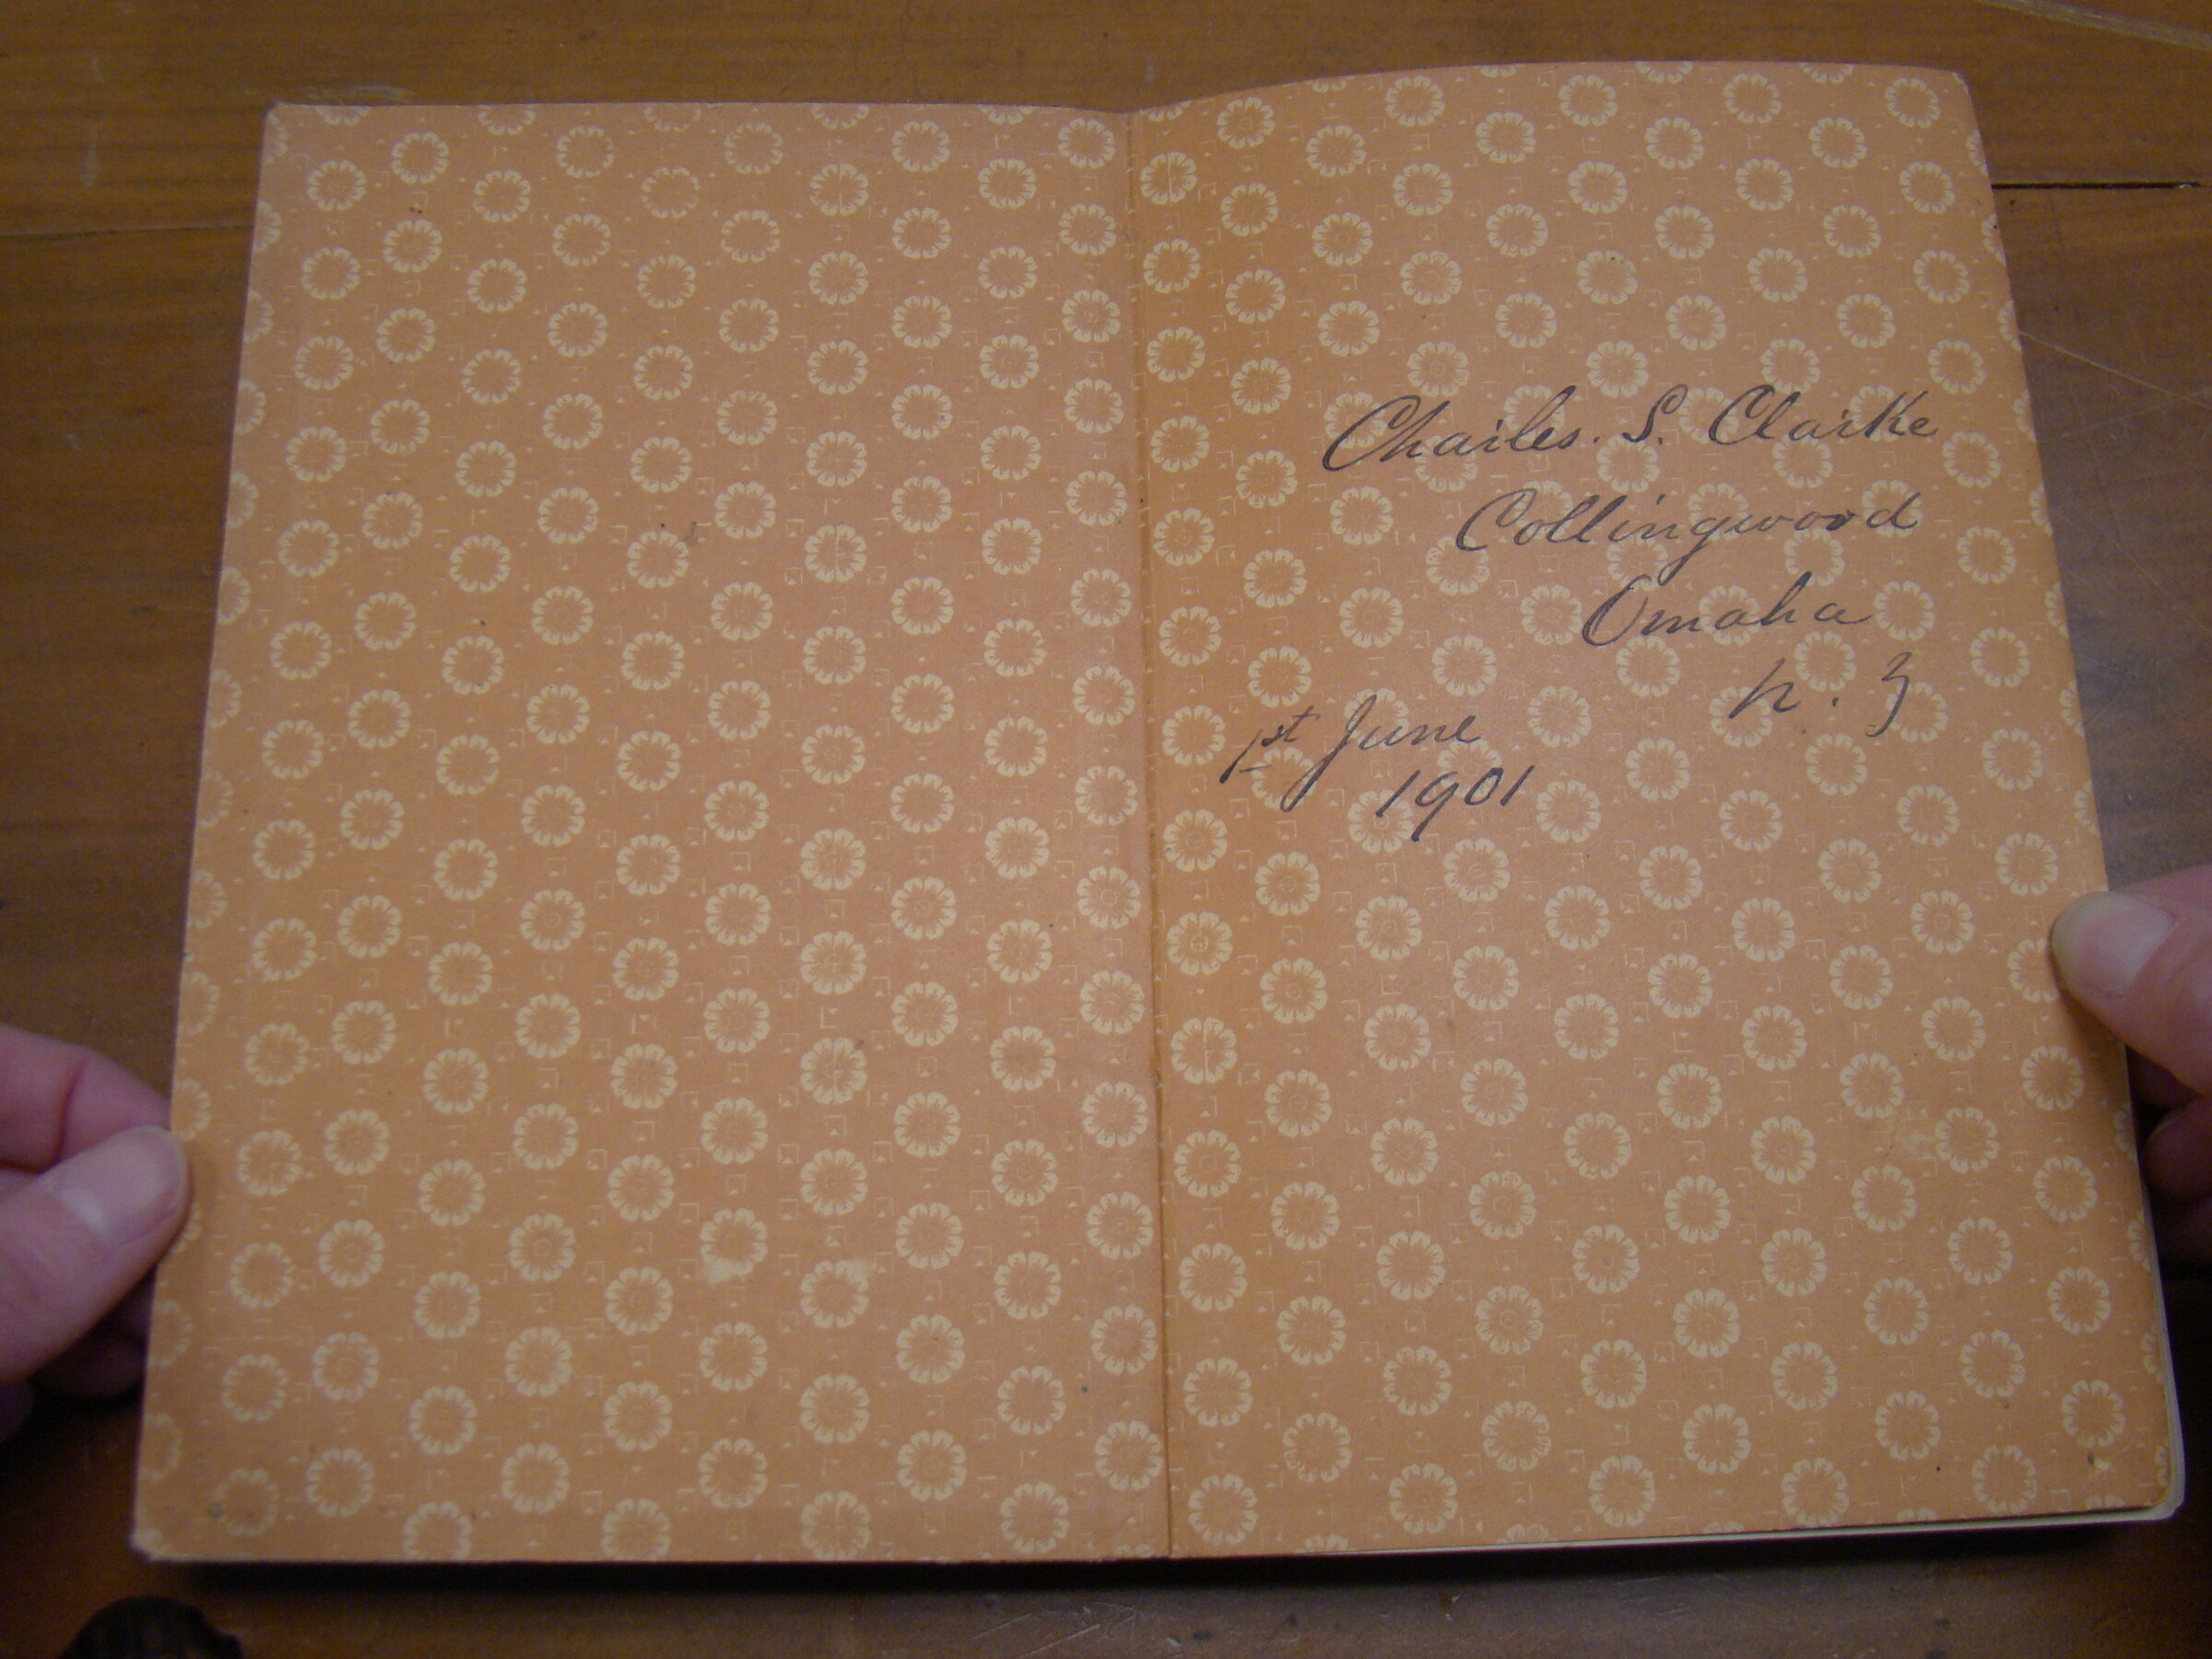 Charles. S. Clarke
Collingwood
Omaha
n. z
1st June
1901